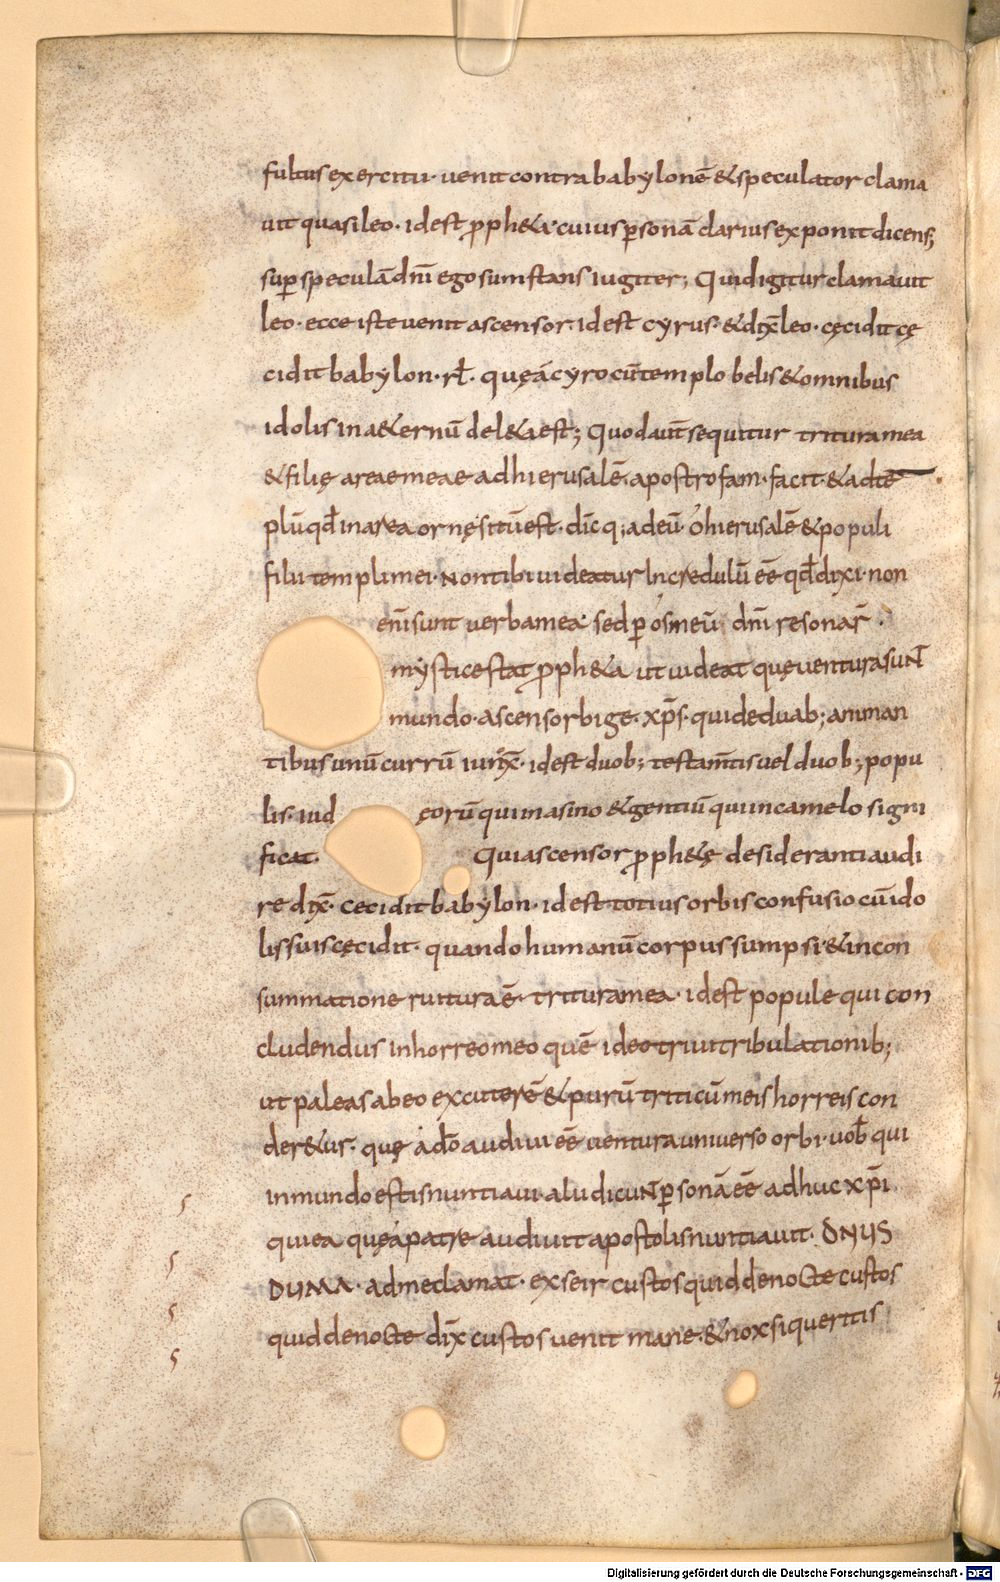 fultus exercitu· uenit contra babylonē & speculator clama
uit quasi leo· id est ꝓph&a· cuius ꝑsonā clarius exponit dicens;
suꝑ speculā dnī ego sum stans iugiter; Quid igitur clamauit
leo· ecce iste uenit ascensor· id est cyrus· & dix̄ leo· cęcidit cę
cidit babylon· rł· quę á cyro cū templo belis & omnibus
idolis in a&ernū del&a est; Quod aut̄ sequitur tritura mea
& filię areae meae ad hierusalē· apostrofam· facit· & ad tē
plū qđ in area ornę sitū est· dīcq; ad eū· ó hierusalē & populi
filii templi mei· Non tibi uideatur Incredulū eē qđ dixi· non
enī sunt uerba mea· sed ꝑ ós meū dnī resonar̄·
mystice stat ꝓph&a ut uideat quę uentura suN̄
mundo· ascensor bige· xp̄s· qui de duab; amman
tibus unū currū iunx̄· id est duob; testam̄tis uel duob; popu
lis· iud ęorū qui in asino & gentiū qui in camelo signi
ficat· Qui ascensor ꝓph&ę desideranti audi
re dix̄· cecidit babylon· id est totius orbis confusio cū ido
lis suis cęcidit· quando humanū corpus sumpsi· & in con
summatione ruitura ē· tritura mea· id est popule qui con
cludendus in horreo meo quē ideo triui tribulationib;
ut paleas ab eo excuterē & purū triticū meis horreis con
der&ur· quę á do audiui eē uentura uniuerso orbi· uob̄ qui
in mundo estis nuntiaui· alii dicuN̄ ꝑsonā eē adhuc xp̄i
qui ea quę á patre audiuit apostolis nuntiauit· ONUS
DUMA· ad me clamat· ex seir custos quid de nocte custos
quid de nocte dix̄ custos uenit mane· & nox si queritis
Digitalisierung gefördert durch die Deutsche Forschungsgemeinschaft - DFG